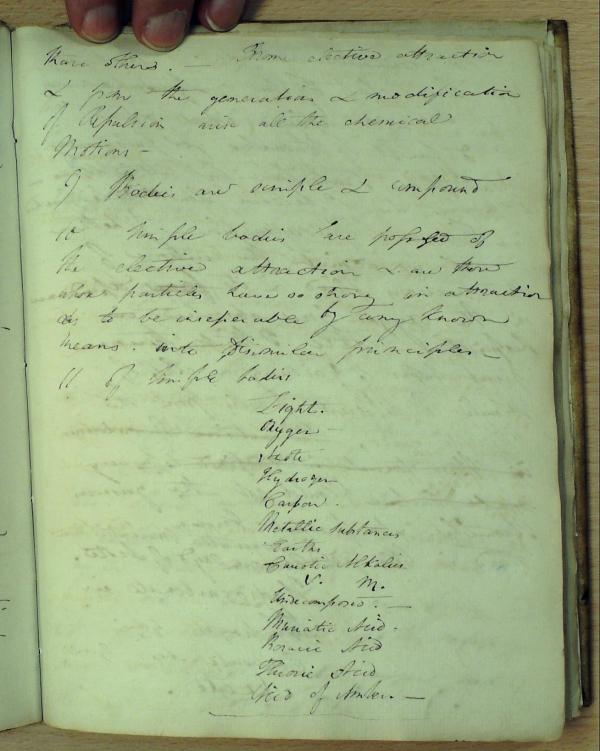 than others. — From elective attraction
& from the generation & modification
of Repulsion arise all the chemical
Motions —
9 Bodies are simple & compound
10 Simple bodies are possessed of
the elective attraction & are those
whose particles have so strong an attraction
as to be inseperable by any known
means. into dissimilar principles —
11 Of Simple bodies
Light.
Oxygen
Azote
Hydrogen
Carbon.
Metallic Substances
Earths
Caustic Alkalies
V. M.
Undecomposed. —
Muriatic Acid.
Boracic Acid
Fluoric Acid
Acid of Amber. —